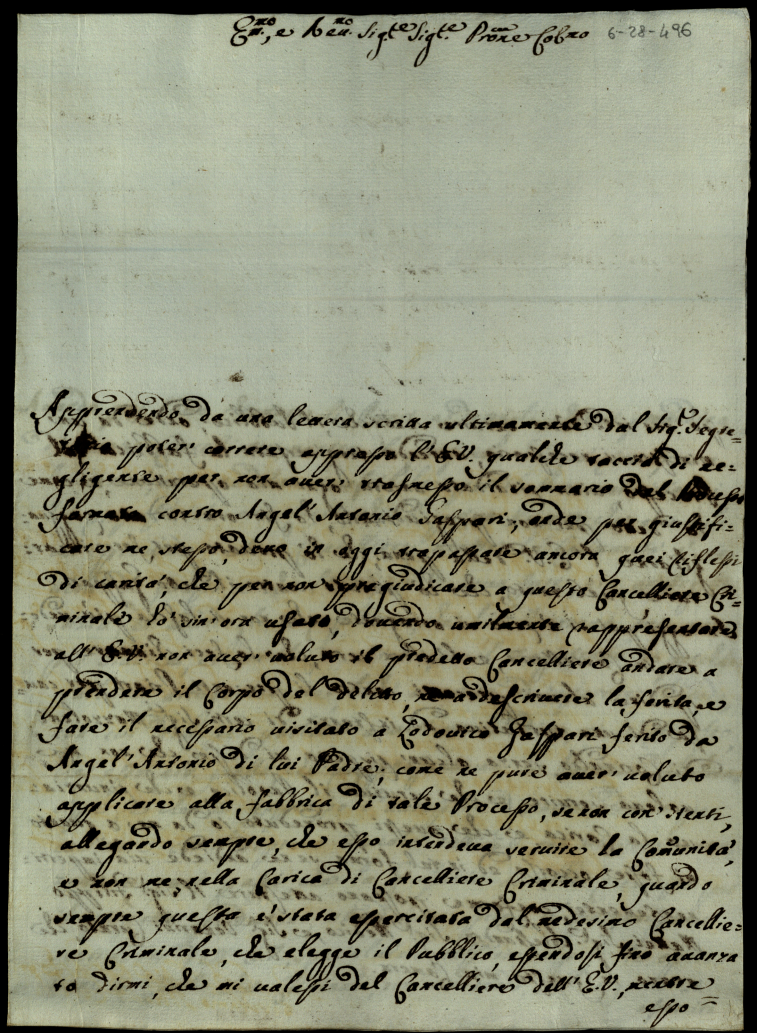 Em.mo, e Reu.mo Sig.re Sig.re Pron̄e Col̄mo 6-28-496
Apprendendo da una lettera scritta ultimamente dal Sig.r Segre=
tario poter' correre appresso l'E.V. qualche taccia di ne=
gligenza per non auer' trasmesso il sommario del Processo
formato contro Angel'Antonio Gaspari, onde per giustifi=
care me stesso, deuo in oggi trapassare ancora quei riflessi
di carità, che per non pregiudicare a questo Cancelliere Cri=
minale hò sin'ora usato, douendo umilmente rappresentare
all'E.V. non auer' uoluto il predetto Cancelliere andare a
prendere il Corpo del delitto, ne a descriuere la ferita, e
fare il necessario uisitato a Lodouico Gaspari ferito da
Angel'Antonio di lui Padre, come ne pure auer' uoluto
applicare alla fabbrica di tale Processo, se non con stenti,
allegando sempre, che esso intendeua seruire la Comunità,
e non me nella Carica di Cancelliere Criminale, quando
sempre questa è stata esercitata dal medesimo Cancellie=
re Criminale, che elegge il Pubblico, essendosi fino auanza
to dirmi, che mi ualessi del Cancelliere dell'E.V., mentre
esso=